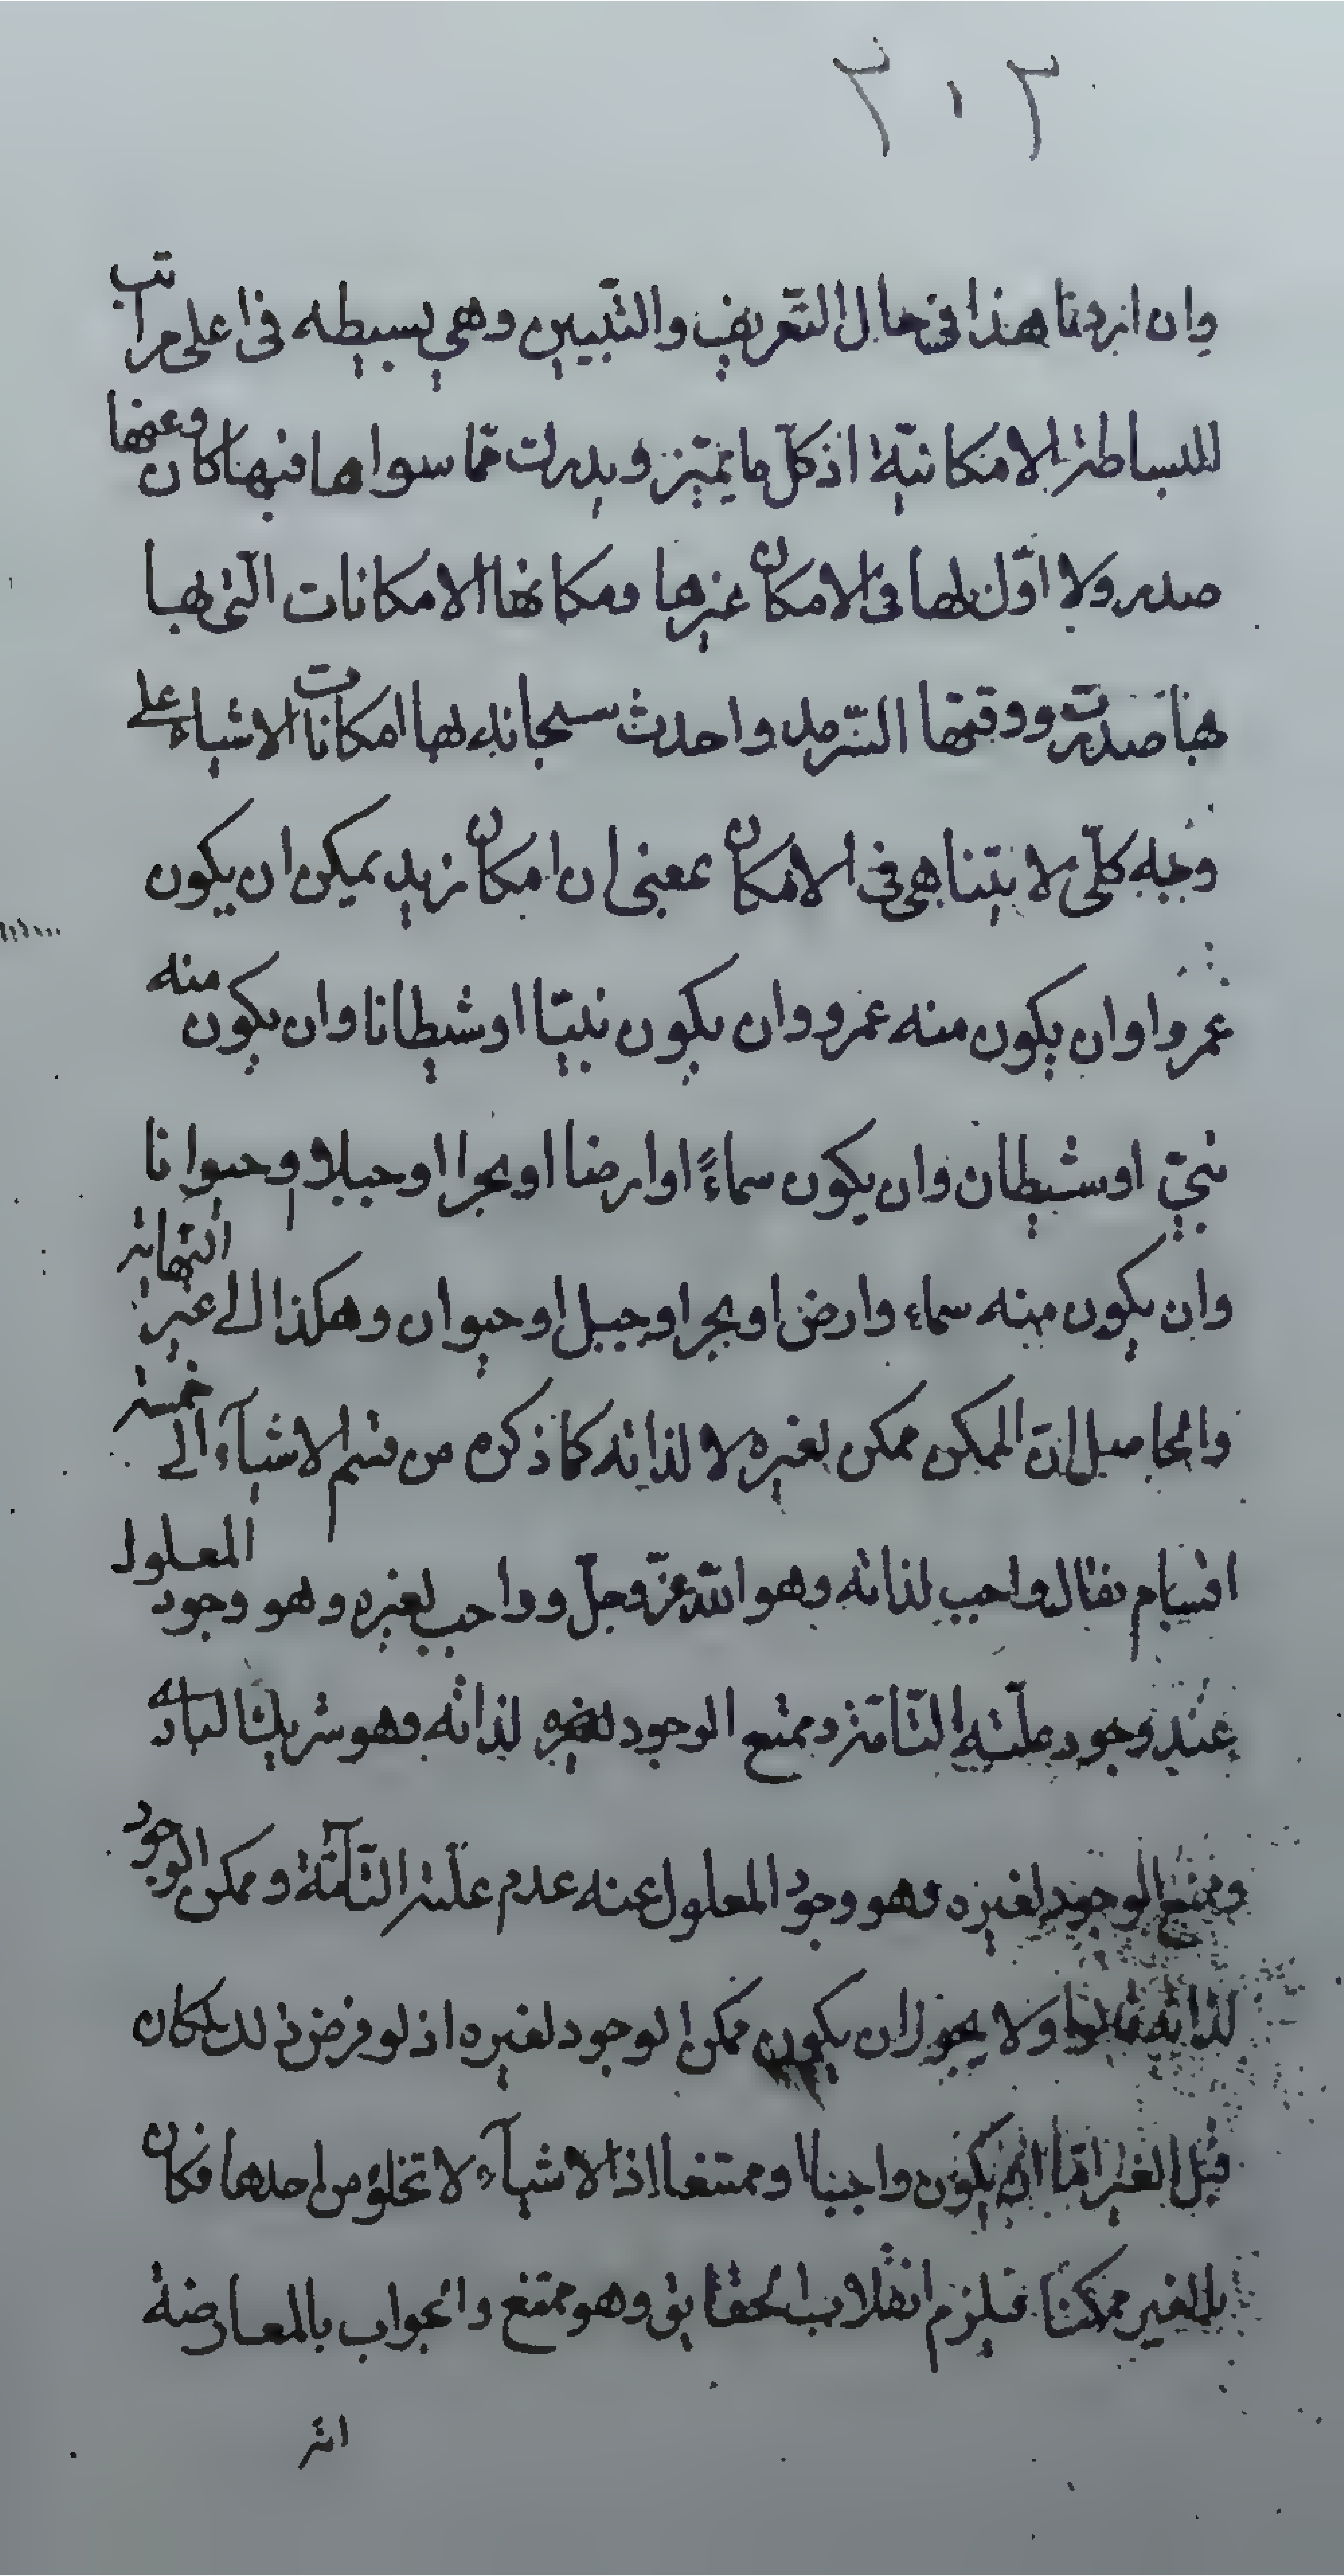 ٢٠٣
وان اردنا هذا في حال التعريف والتبيين وهي بسيطه في اعلى مراتب
البساطة الامكانية اذ كل ما يتميز ويدرك مما سواها فبها كان وعنها
صدر ولا اول لها في الامكان غيرها ومكانها الامكانات التي بها
هنا صدرت ووقتها السرمد واحدث سبحانه لها امكانات الاشياء على
وجه كلي لا يتناهى في الامكان بمعنى ان امكان زيد يمكن ان يكون
عمروا وان يكون منه عمرو وان يكون نبيا او شيطانا وان يكون منه
نبي او شيطان وان يكون سماءً او ارضا او بحرا او جبلا او حيوانا
وان يكون منه سماء وارض او بحر او جبل او حيوان وهكذا الى غير النهاية
والحاصل ان الممكن ممكن لغيره لا لذاته كما ذكره من قسم الاشياء الى خمسة
اقسام فقال واجب لذاته وهو الله عز وجل وواجب لغيره وهو وجود المعلول
عند وجود علته التامة وممتنع الوجود لذاته فهو شريك الباري
وممتنع الوجود لغيره وهو وجود المعلول عنه عدم علته التامة وممكن الوجود
لذاته قالوا ولا يجوز ان يكون ممكن الوجود لغيره اذ لو فرض ذلك لكان
قبل الغير اما ان يكون واجبا او ممتنعا اذ الاشياء لا تخلو من احدها فكان
بالغير ممكنا فيلزم انقلاب الحقايق وهو ممتنع والجواب بالمعارضة